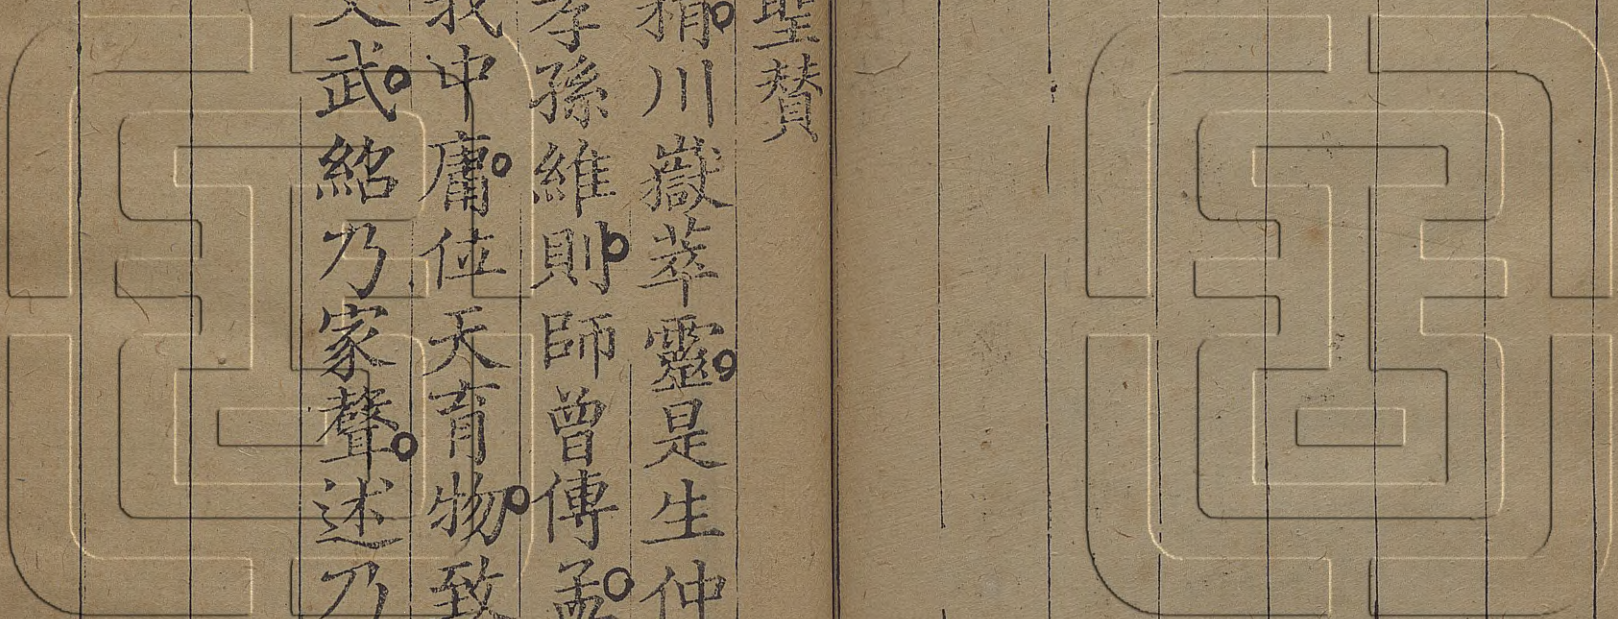 聖贊
精。川嶽萃靈。是生仲
孝孫維則。師曾傳孟。
我中庸。位天育物。致
文武。紹乃家聲。述乃